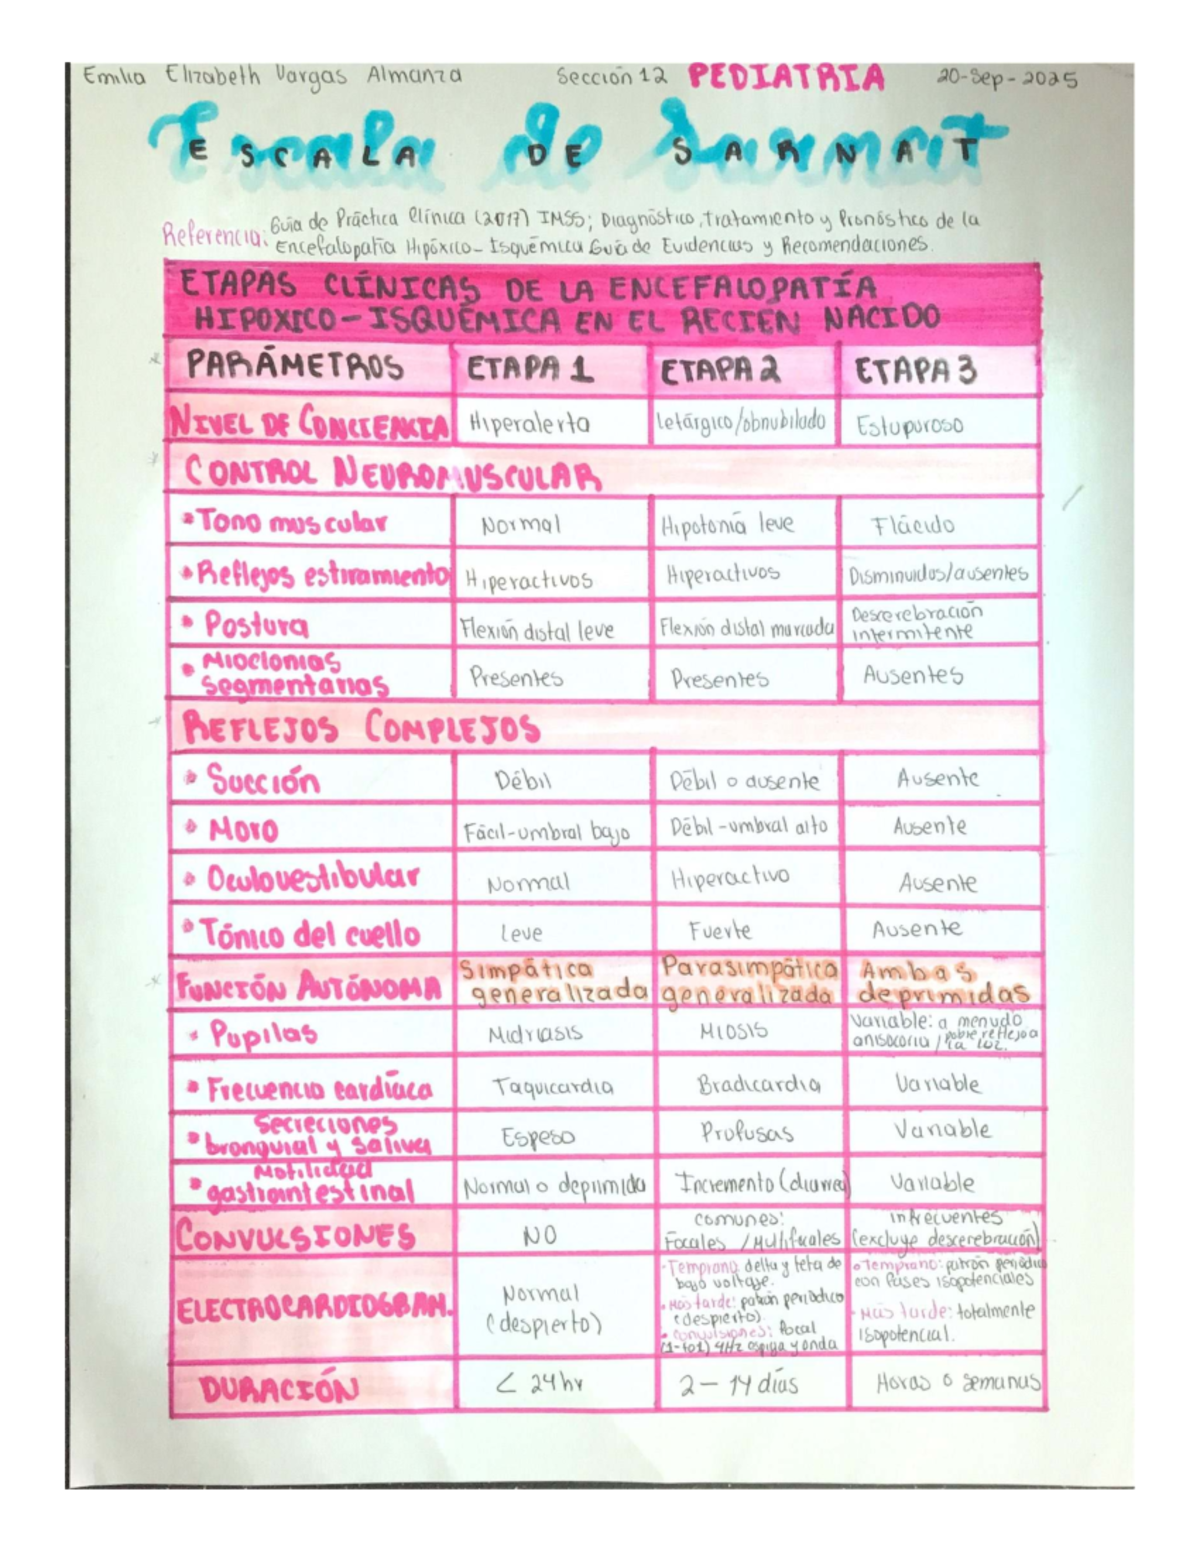 Emilia Elizabeth Vargas Almanza Sección 12 PEDIATRIA 20-Sep-2025
ESCALA DE SARNAT
Referencia: Guía de Práctica Clínica (2017) IMSS; Diagnóstico, tratamiento y Pronóstico de la
Encefalopatía Hipóxico-Isquémica Guía de Evidencias y Recomendaciones.
ETAPAS CLÍNICAS DE LA ENCEFALOPATÍA
HIPOXICO-ISQUÉMICA EN EL RECIEN NACIDO
PARÁMETROS ETAPA 1 ETAPA 2 ETAPA 3
NIVEL DE CONCIENCIA Hiperalerta Letárgico/obnubilado Estuporoso
CONTROL NEUROMUSCULAR
Tono muscular Normal Hipotonía leve Flácido
Reflejos estiramiento Hiperactivos Hiperactivos Disminuidos/ausentes
Postura Flexión distal leve Flexión distal marcada Descerebración
intermitente
Mioclonias
segmentarias Presentes Presentes Ausentes
REFLEJOS COMPLEJOS
Succión Débil Débil o ausente Ausente
Moro Fácil-umbral bajo Débil-umbral alto Ausente
Oculovestibular Normal Hiperactivo Ausente
Tónico del cuello Leve Fuerte Ausente
FUNCIÓN AUTÓNOMA Simpática Parasimpática Ambas
generalizada generalizada deprimidas
Pupilas Midriasis Miosis Variable: a menudo
anisocoria / pobre reflejo a
la luz.
Frecuencia cardíaca Taquicardia Bradicardia Variable
Secreciones
bronquial y saliva Espeso Profusas Variable
Motilidad
gastrointestinal Normal o deprimida Incremento (diarrea) Variable
CONVULSIONES NO comunes: infrecuentes
Focales /Multifocales (excluye descerebración)
ELECTROCARDIOGRAM. Normal
(despierto)
Temprano: delta y teta de
bajo voltaje.
Más tarde: patrón periódico
(despierto)
convulsiones: focal
(1-101) 4Hz espiga y onda
Temprano: patrón periódico
con fases isopotenciales
Más tarde: totalmente
isopotencial.
DURACIÓN < 24hr 2 - 14 días Horas o semanas